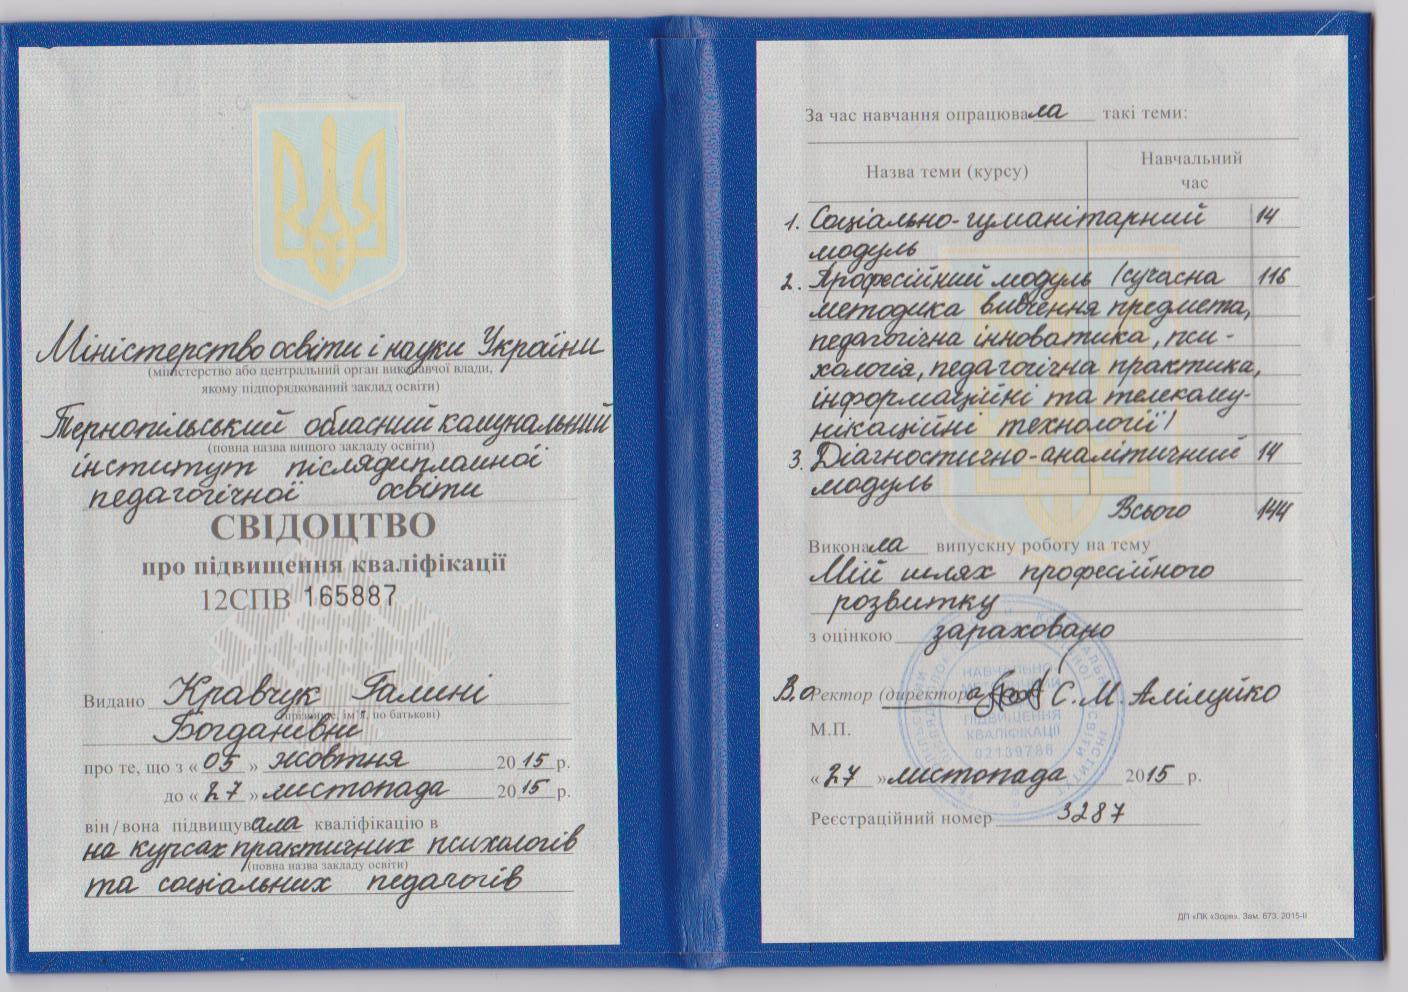 Міністерство освіти і науки України
(міністерство або центральний орган виконавчої влади,
якому підпорядкований заклад освіти)
Тернопільський обласний комунальний
(повна назва вищого закладу освіти)
інститут післядипломної
педагогічної освіти
СВІДОЦТВО
про підвищення кваліфікації
12СПВ 165887
Видано Кравчук Галині
(прізвище, ім'я, по батькові)
Богданівні
про те, що з « 05 » жовтня 2015 р.
до « 27 » листопада 2015 р.
він/вона підвищувала кваліфікацію в
на курсах практичних психологів
(повна назва закладу освіти)
та соціальних педагогів
За час навчання опрацювала такі теми:
Назва теми (курсу) Навчальний
час
1. Соціально-гуманітарний 14
модуль
2. Професійний модуль /сучасна 116
методика вивчення предмета,
педагогічна інноватика, пси-
хологія, педагогічна практика,
інформаційні та телекому-
нікаційні технології/
3. Діагностично-аналітичний 14
модуль
Всього 144
Виконала випускну роботу на тему
Мій шлях професійного
розвитку
з оцінкою зараховано
В.о Ректор (директор)
М.П.
НАВЧАЛЬНО
ПІДВИЩЕННЯ
КВАЛІФІКАЦІЇ
02139786
« 27 » листопада 2015 р.
Реєстраційний номер 3287
ДП «ПК «Зоря». Зам. 673. 2015-II